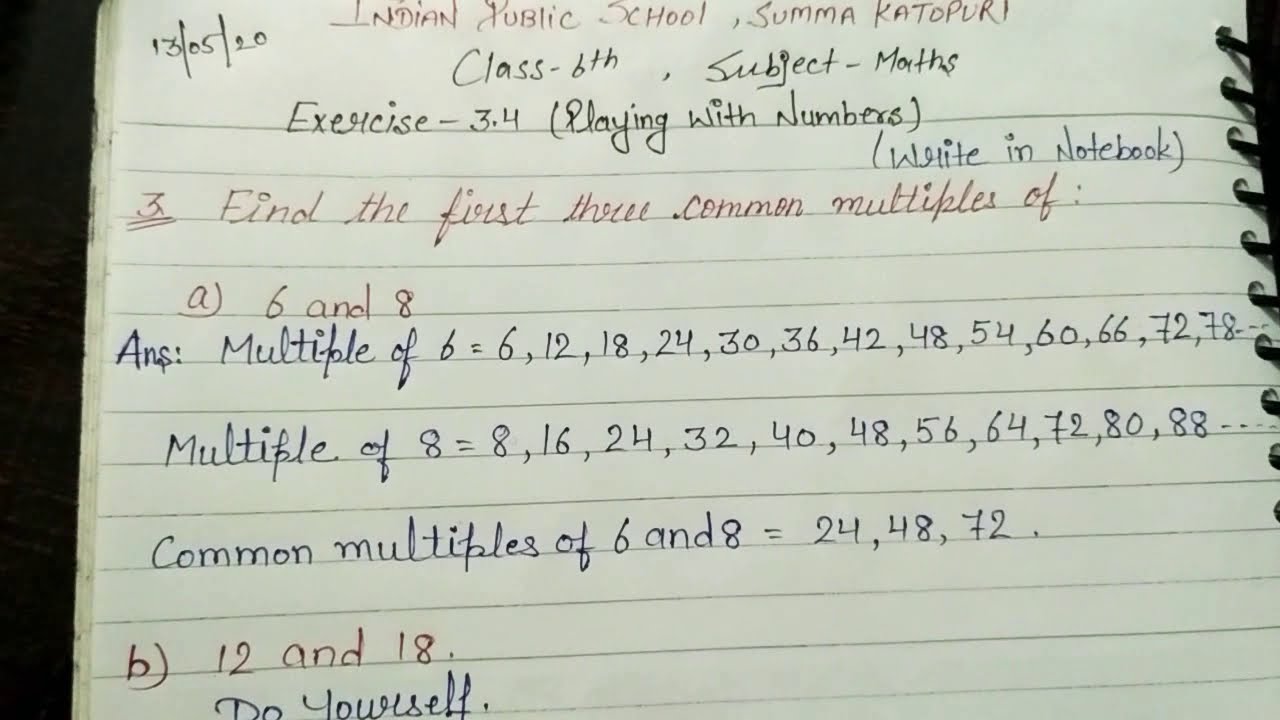 INDIAN PUBLIC SCHOOL, SUMMA KATOPURI
13/05/20
Class-6th, Subject-Maths
Exercise-3.4 (Playing With Numbers)
(Write in Notebook)
3 Find the first three common multiples of:
a) 6 and 8
Ans: Multiple of 6 = 6, 12, 18, 24, 30, 36, 42, 48, 54, 60, 66, 72, 78---
Multiple of 8 = 8, 16, 24, 32, 40, 48, 56, 64, 72, 80, 88----
Common multiples of 6 and 8 = 24, 48, 72.
b) 12 and 18.
Do Yourself.